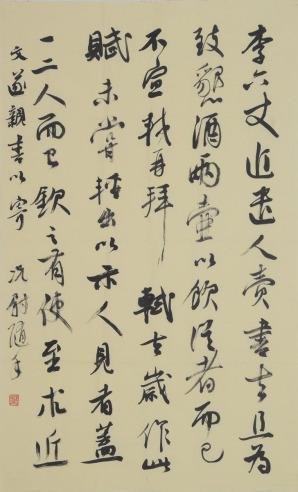 李六丈近遣人賣書去且為
致鄙酒兩壺以飲從者而已
不宣 軾再拜 軾去歲作此
賦未嘗輕出以示人見者蓋
一二人而已欽之有使至求近
文遂親書以寄 隨手